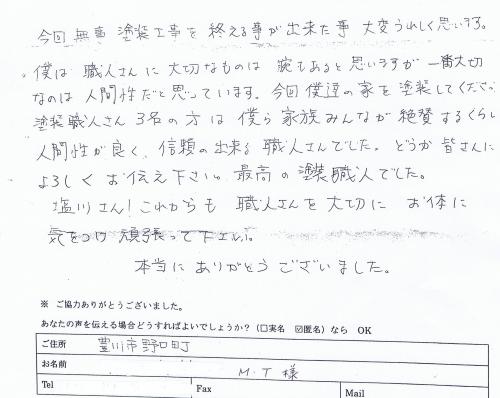 今回 無事 塗装工事を 終える事が 出来た事 大変うれしく思います。
僕は 職人さんに 大切なものは 腕もあると思いますが 一番大切
なのは 人間性だと思っています。今回 僕達の家を 塗装してくださ
塗装職人さん 3名の方は 僕ら家族みんなが 絶賛するくらい
人間性が良く、信頼の出来る 職人さんでした。どうか皆さんに
よろしく お伝え下さい。最高の 塗装職人でした。
塩川さん!これからも 職人さんを 大切に お体に
気をつけ 頑張って下さい。
本当に ありがとう ございました。
※ ご協力ありがとうございました。
あなたの声を伝える場合どうすればよいでしょうか?(□実名 ☑匿名)なら OK
ご住所 豊川市野口町
お名前 M・T 様
Tel Fax Mail